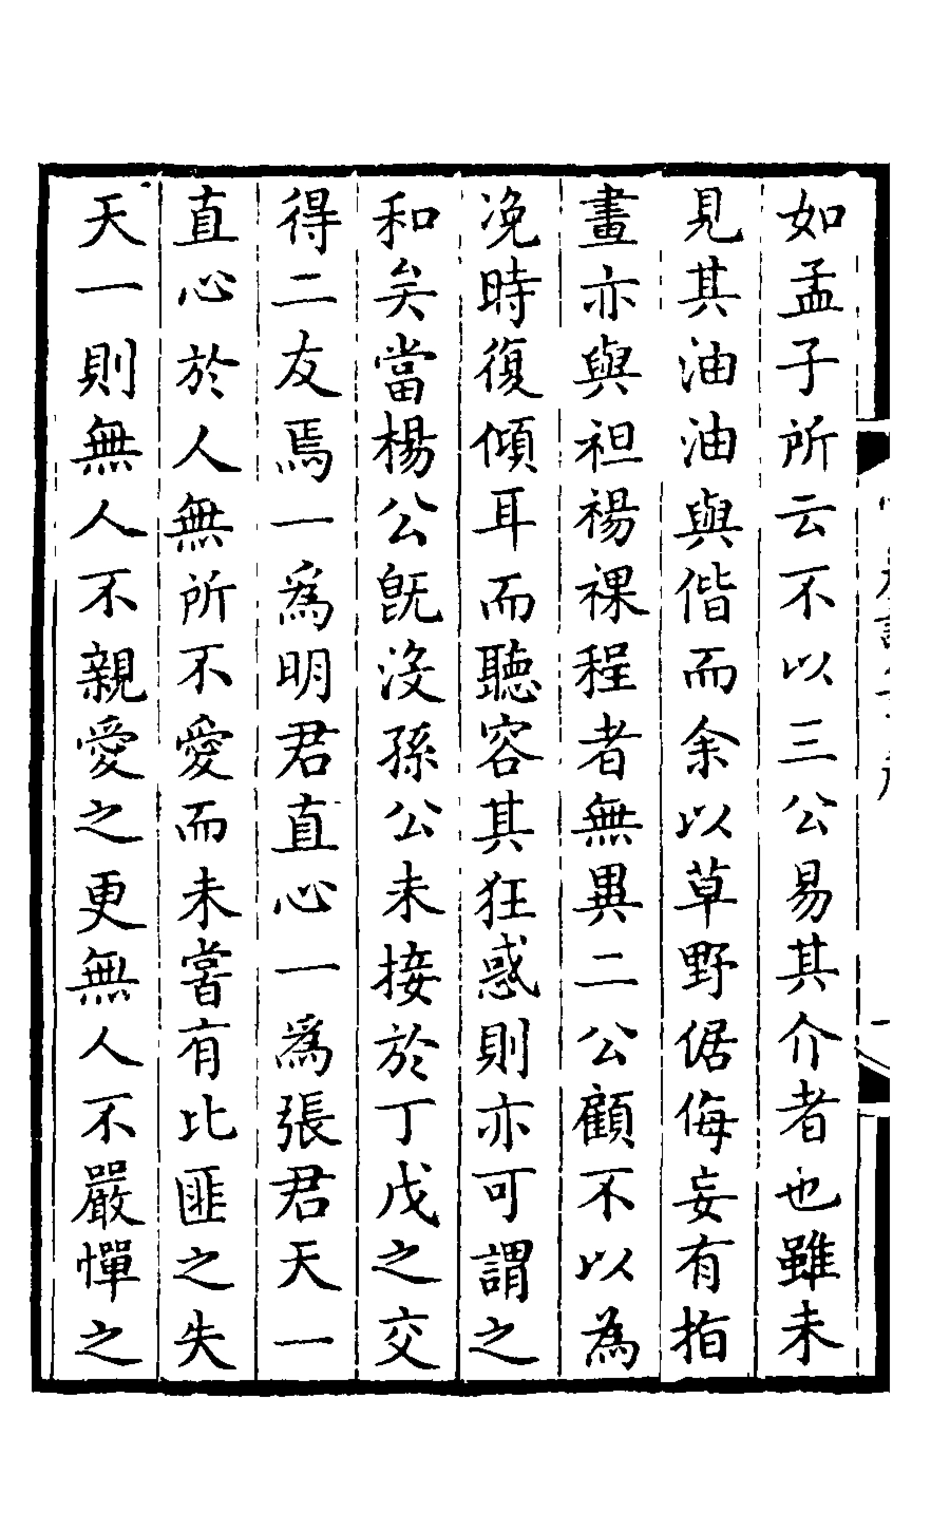 如孟子所云不以三公易其介者也雖未
見其油油與偕而余以草野倨侮妄有指
畫亦與袒裼裸程者無異二公顧不以為
浼時復傾耳而聽容其狂惑則亦可謂之
和矣當楊公既沒孫公未接於丁戊之交
得二友焉一為明君直心一為張君天一
直心於人無所不愛而未嘗有比匪之失
天一則無人不親愛之更無人不嚴憚之